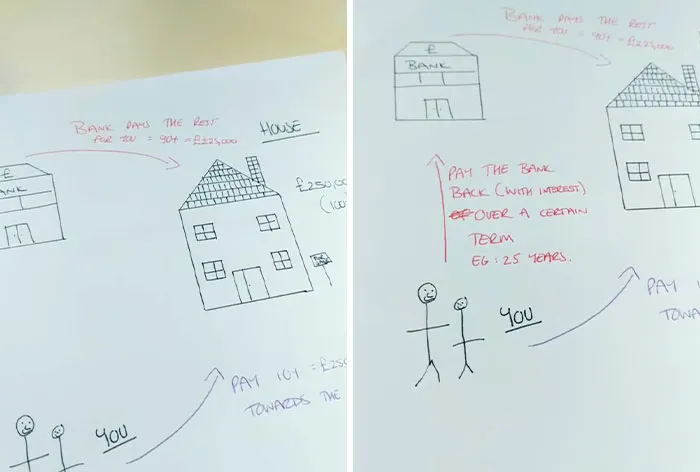 BANK PAYS THE REST
FOR YOU = 90% = £225,000
HOUSE
£
BANK
£250,00
(100
YOU
PAY 10% = £250
TOWARDS THE
BANK PAYS THE REST
FOR YOU = 90% = £225,000
£
BANK
PAY THE BANK
BACK (WITH INTEREST)
OVER A CERTAIN
TERM
EG: 25 YEARS.
YOU
PAY 1
TOWA